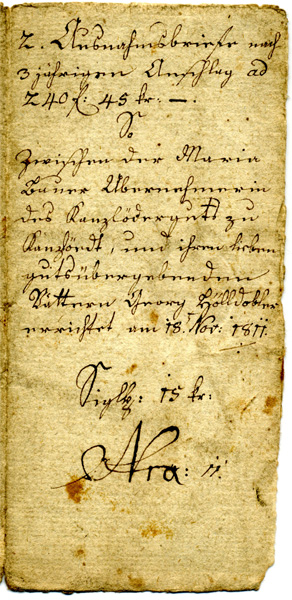 2. Ausnahmsbriefe nach
3 jährigen Anschlag ad
240 f: 45 kr: —.
So
Zwischen der Maria
Bauer Übernehmerin
des Kanzlödergutt zu
Kanzloedt, und ihren lieben
gutsübergebenden
Vättern Georg Hölldobler
errichtet am 18. Nov: 1811.
Siglg: 15 kr:
Nra: 11.